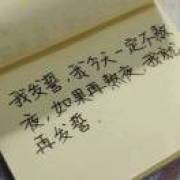 我发誓，我今天一定不熬
夜，如果再熬夜，我就
再发誓。